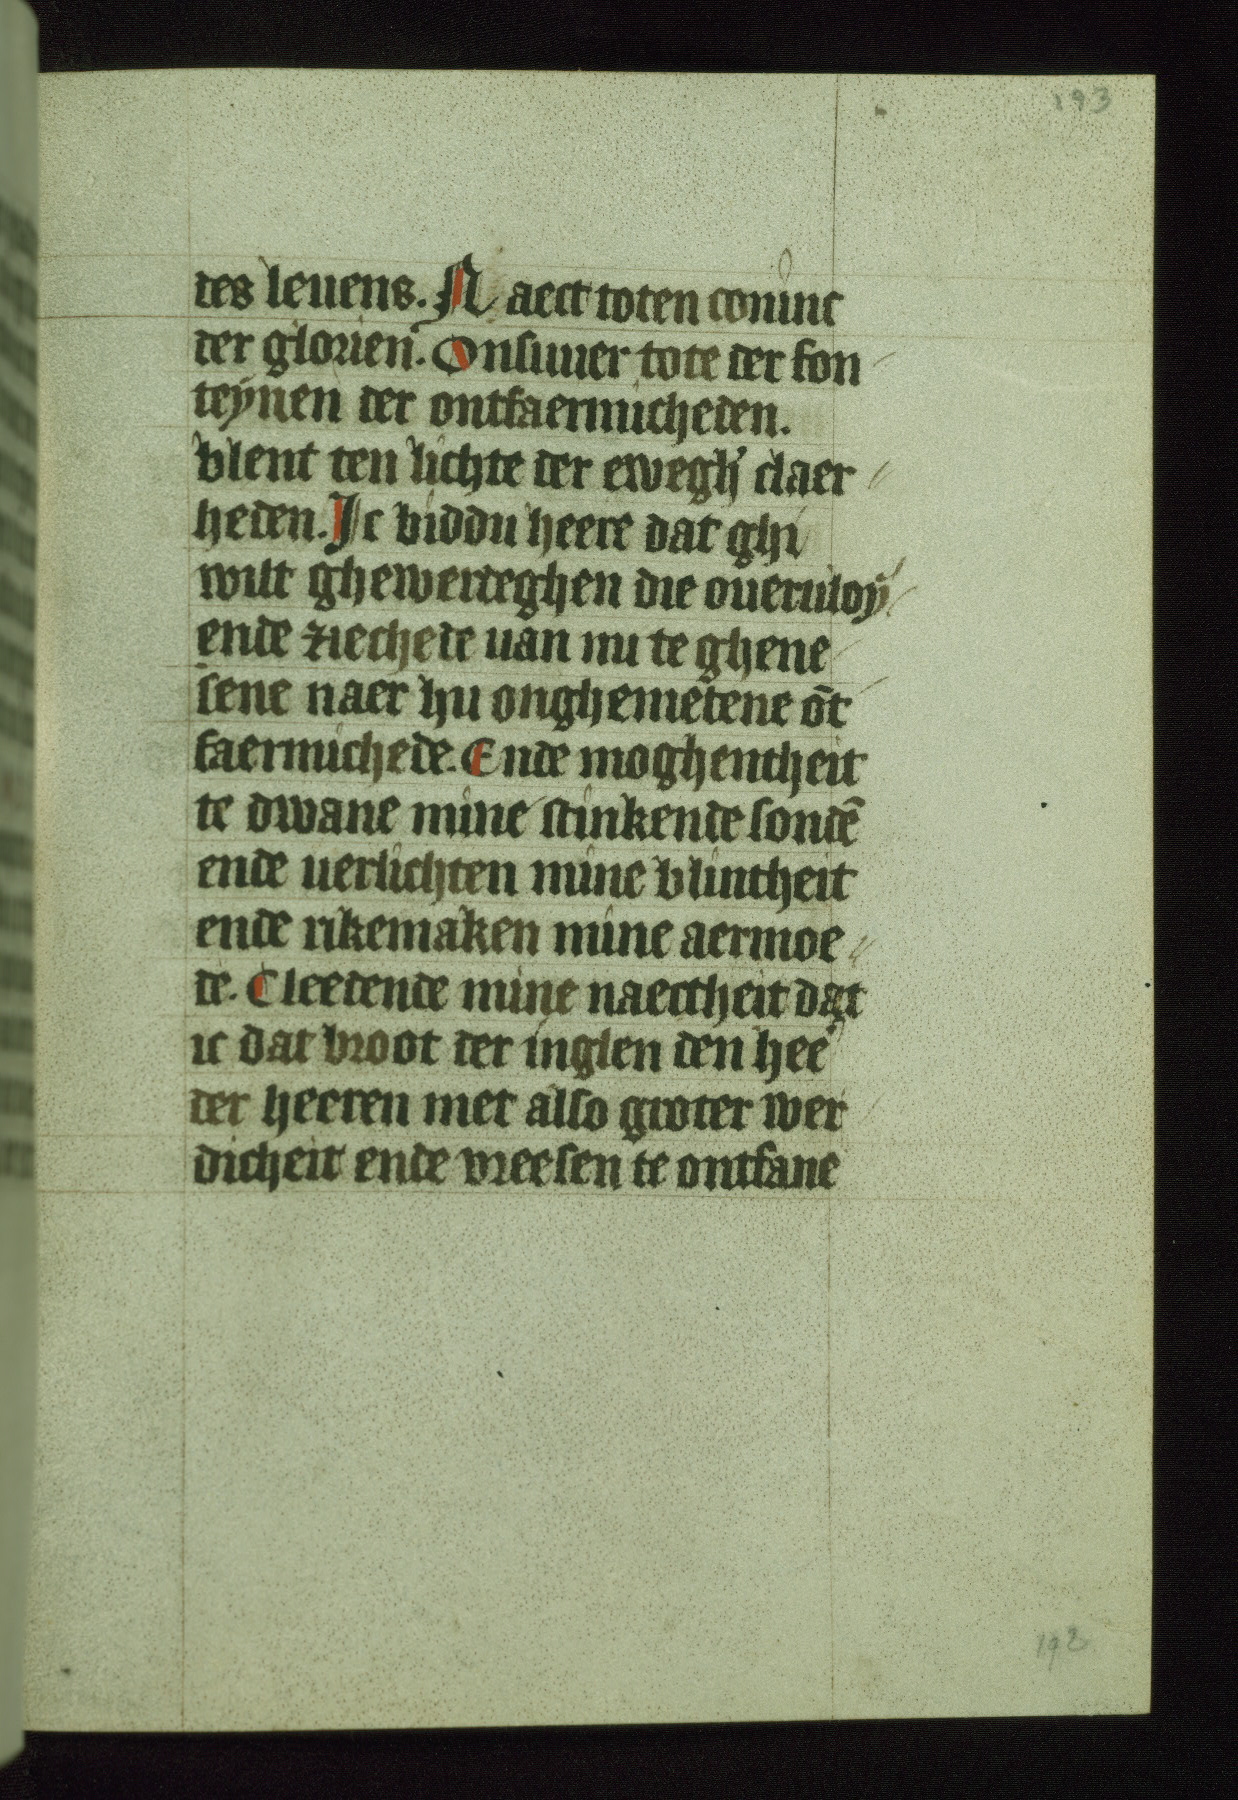 193
des leuens. Naect toten coninc
der glorien. Onsuuer tote der fon
teynen der ontfaermicheden.
blent ten lichte der ewegh' claer
heden. Ic biddu heere dat ghi
wilt ghewerdeghen die oueruloy'
ende ziechede van mi te ghene
sene naer hu onghemetene ōt
faermichede. Ende moghentheit
te dwane mine stinkende sondē
ende verlichten mine blintheit
ende rikemaken mine aermoe
de. Cleedende mine naectheit dat
ic dat broot der inglen den hee'
der heeren met also groter wer
dicheit ende vreesen te ontfane